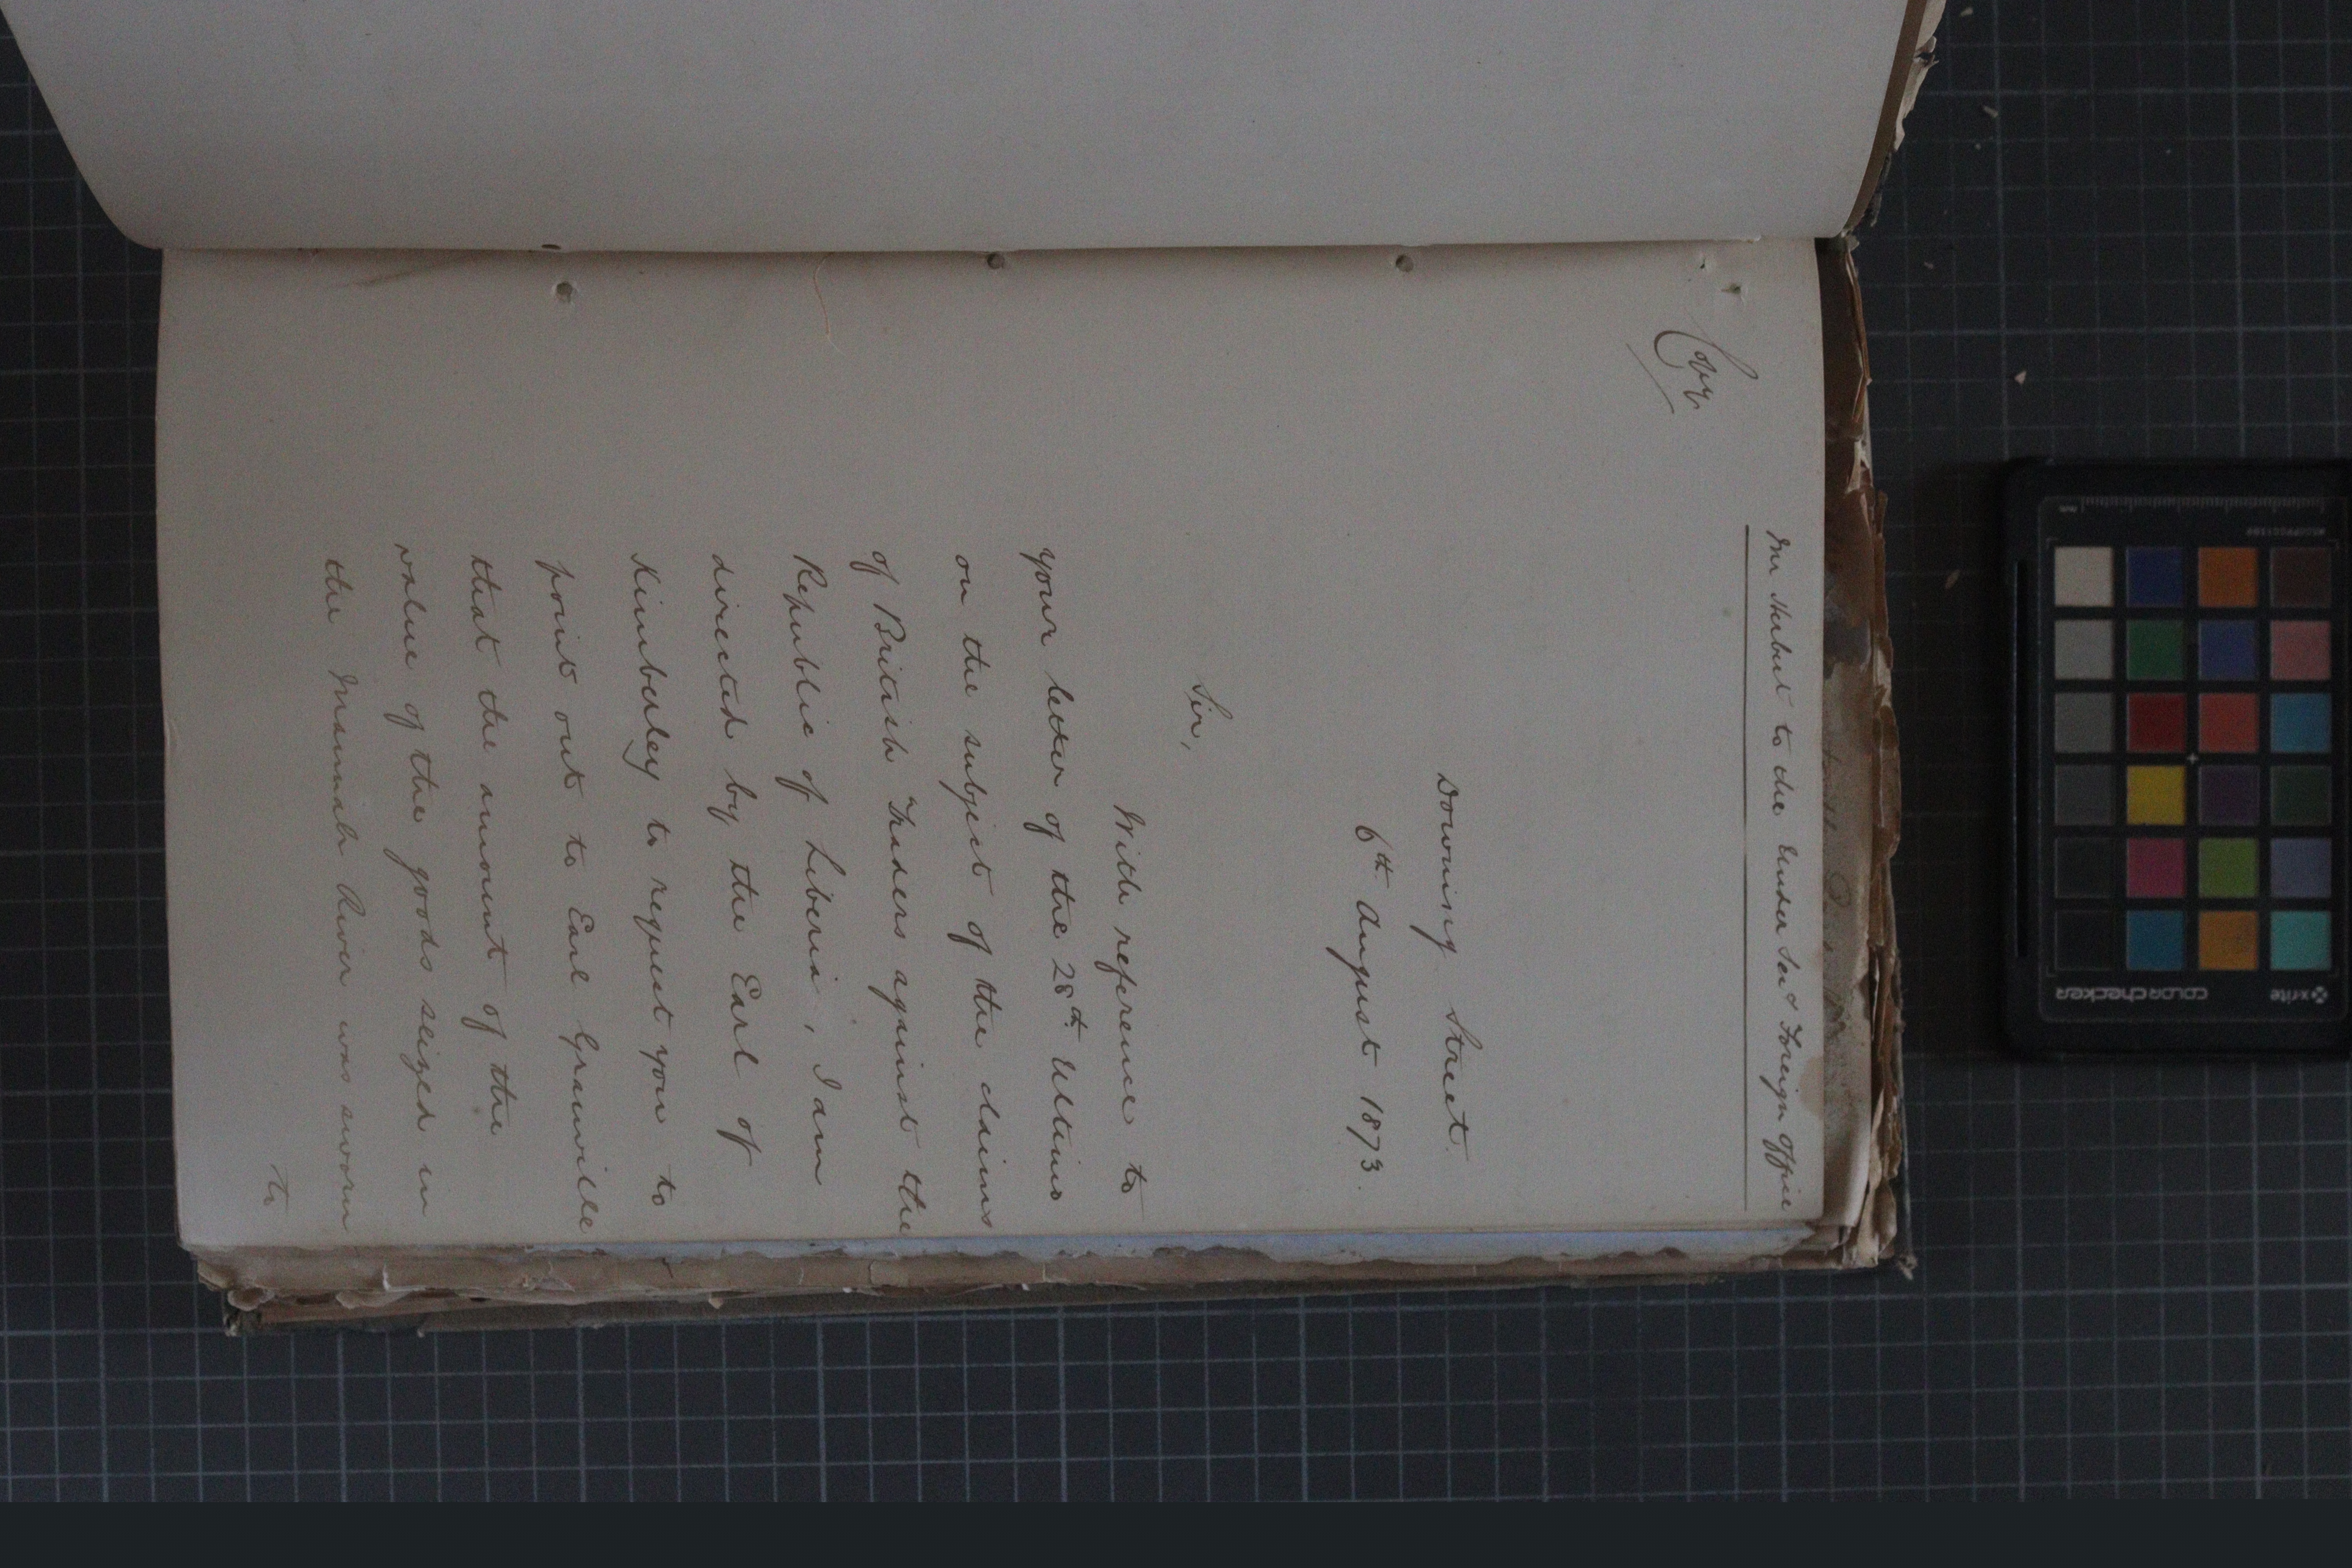 Mr Herbert to the Under Secy Foreign Office
Copy
Downing Street.
6th August 1873.
Sir,
With reference to
your letter of the 28th Ultimo
on the subject of the claims
of British Traders against the
Republic of Liberia, I am
directed by the Earl of
Kimberley to request you to
point out to Earl Granville
that the amount of the
value of the goods seized in
the Mannah River was sworn
to
x-rite
colorchecker